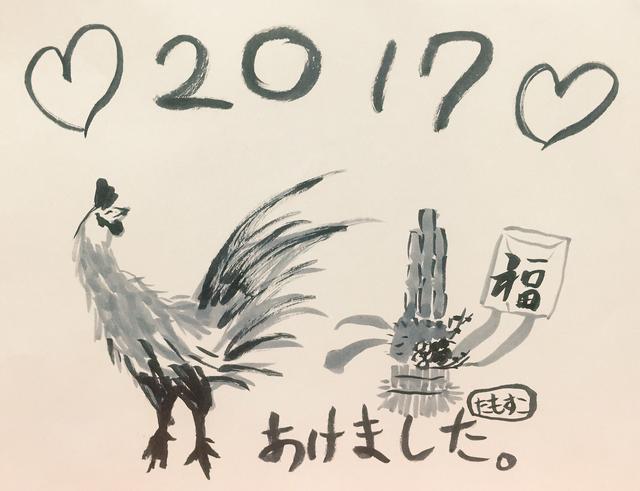 2017
福
たもすこ
あけました。